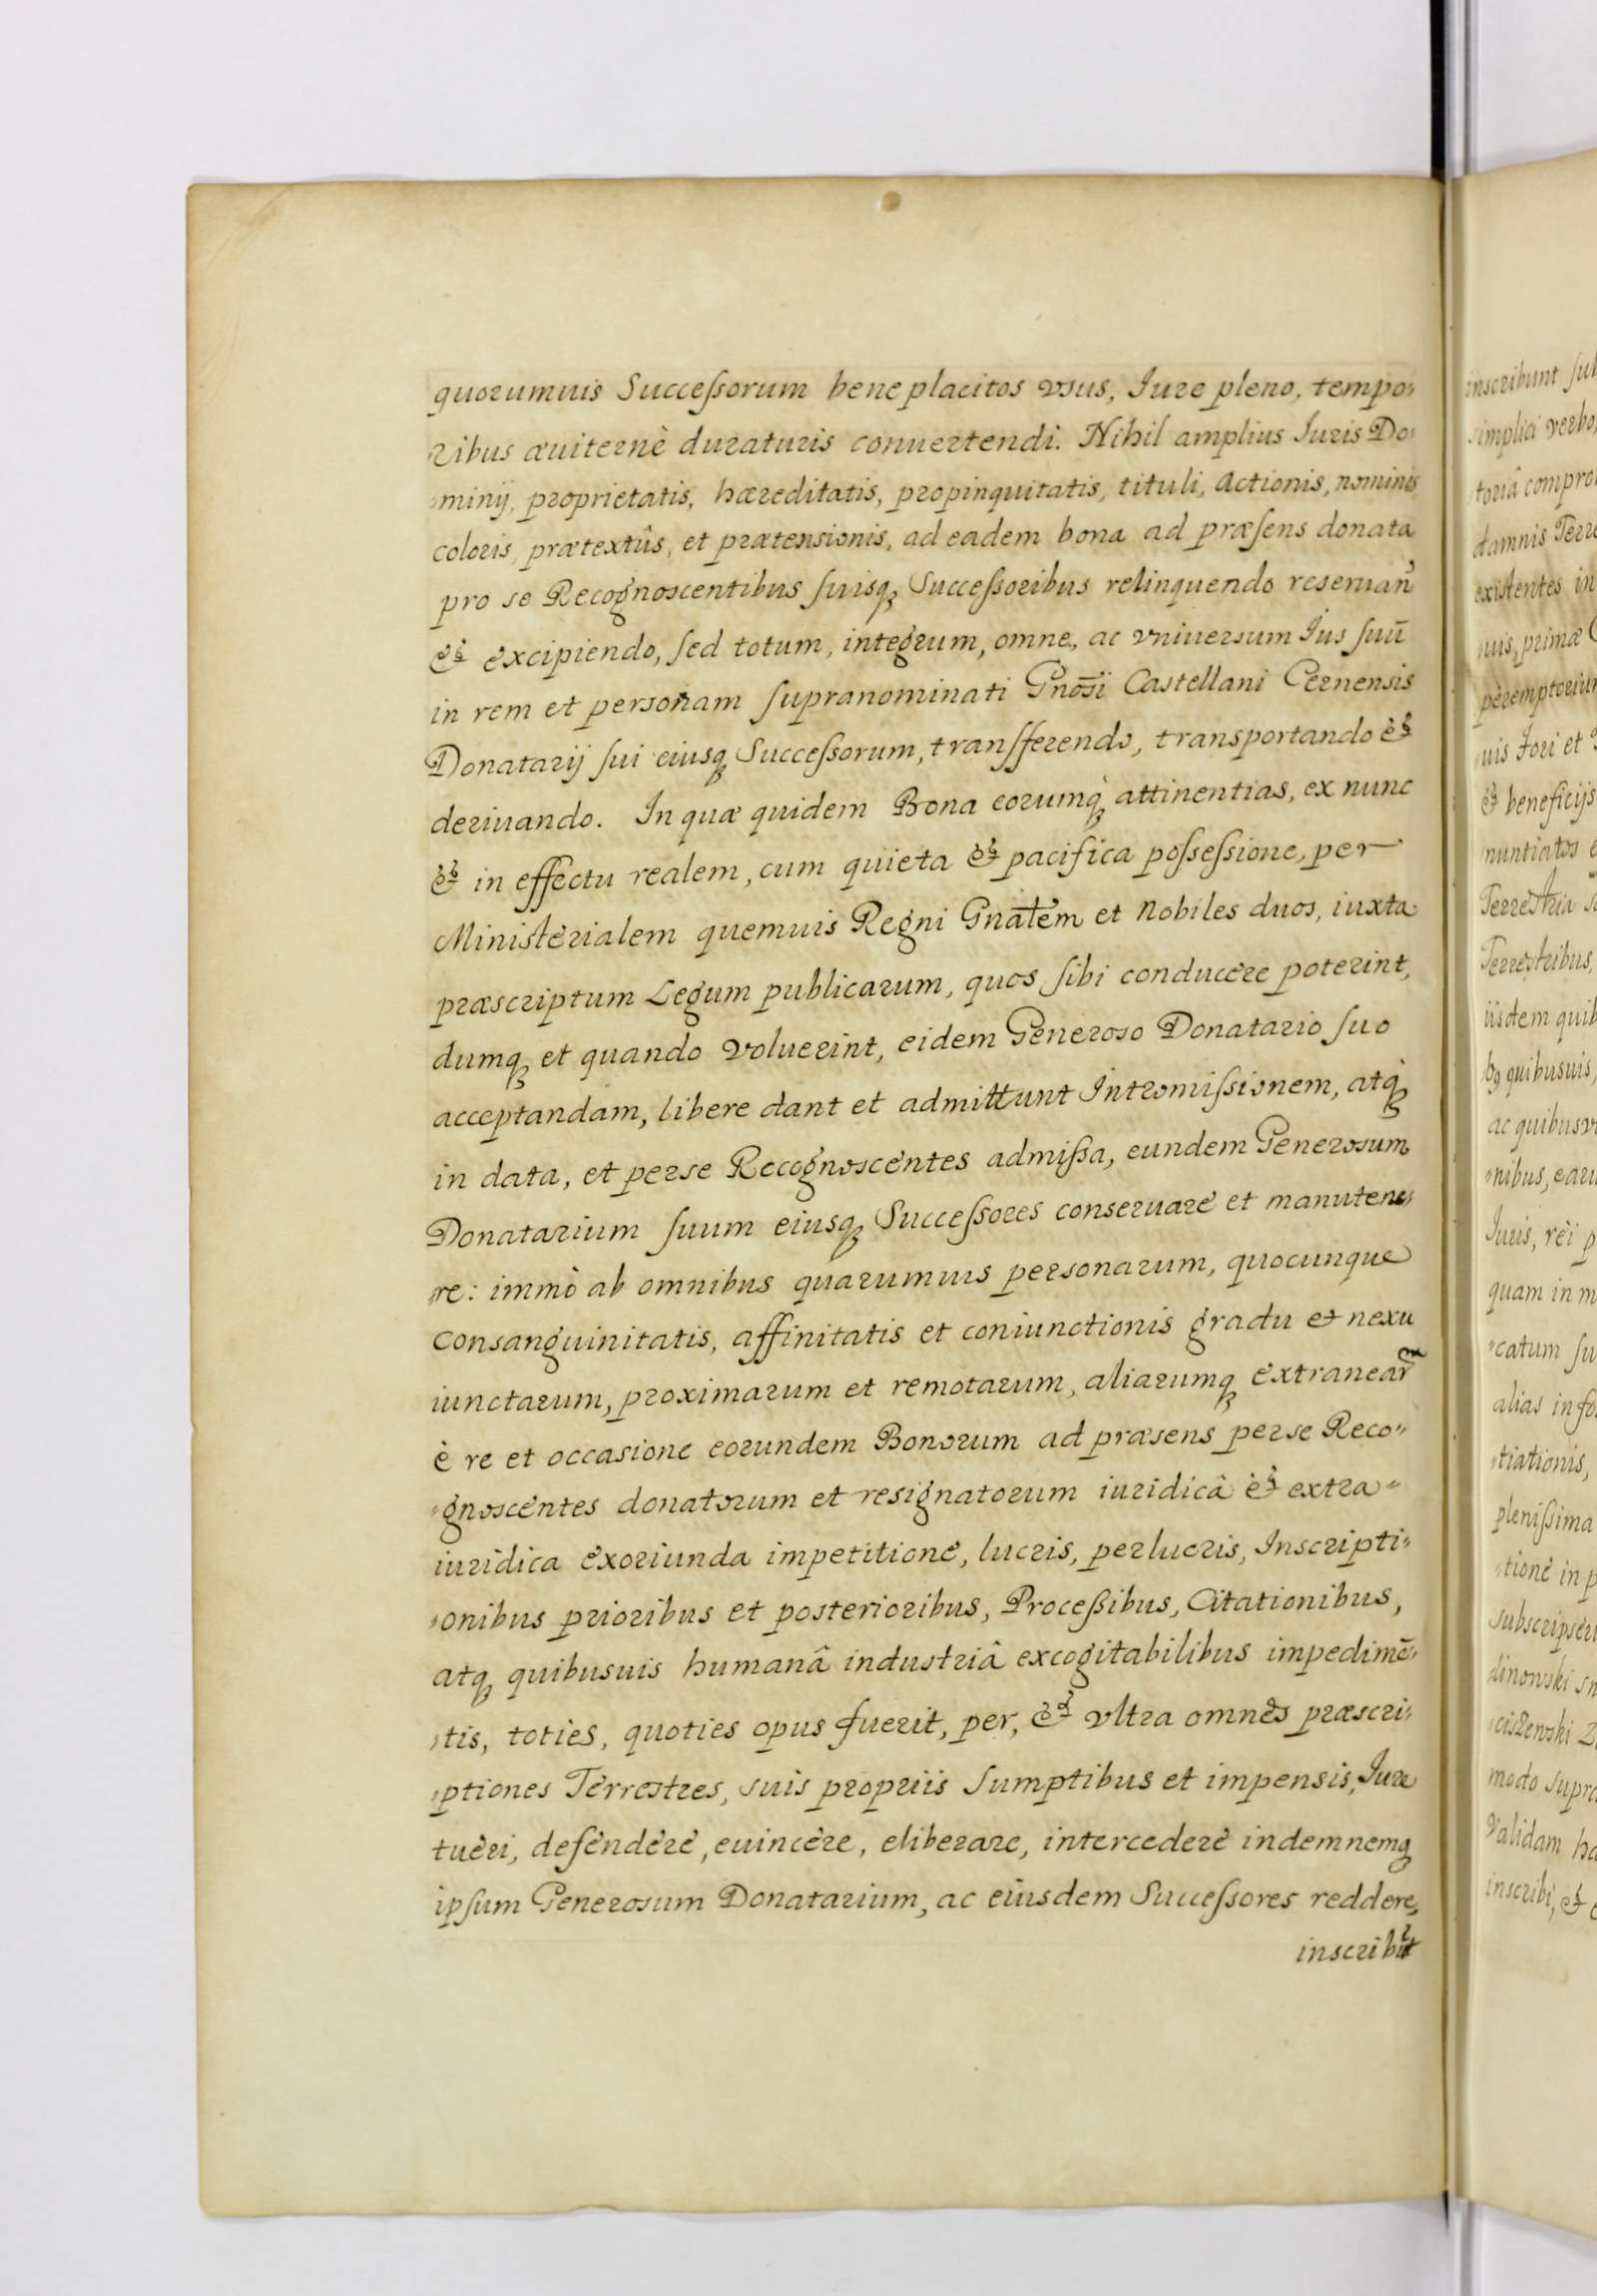 quorumuis Successorum beneplacitos vsus, Jure pleno, tempo„
„ribus æuiternè duraturis conuertendi. Nihil amplius Juris Do„
„minij, proprietatis, hæreditatis, propinquitatis, tituli, actionis, nominis
coloris, prætextûs, et prætensionis, ad eadem bona ad præsens donata
pro se Recognoscentibus suisq; Successoribus relinquendo reseruañ
& excipiendo, sed totum, integrum, omne, ac vniuersum Jus suū
in rem et personam supranominati Gnosi Castellani Cernensis
Donatarij sui eiusq; Successorum, transferendo, transportando &
deriuando. In quæ quidem Bona eorumq; attinentias, ex nunc
& in effectu realem, cum quieta & pacifica possessione, per
Ministerialem quemuis Regni Gnalem et Nobiles duos, iuxta
præscriptum Legum publicarum, quos sibi conducere poterint,
dumq; et quando voluerint, eidem Generoso Donatario suo
acceptandam, libere dant et admittunt Intromissionem, atq;
in data, et per se Recognoscentes admissa, eundem Generosum
Donatarium suum eiusq; Successores conseruare et manutene„
„re: immò ab omnibus quarumuis personarum, quocunque
consanguinitatis, affinitatis et coniunctionis gradu et nexu
iunctarum, proximarum et remotarum, aliarumq; extranear
è re et occasione eorundem Bonorum ad præsens per se Reco„
„gnoscentes donatorum et resignatorum iuridicâ & extra„
iuridica exoriunda impetitione, lucris, perlucris, Inscripti„
„onibus prioribus et posterioribus, Processibus, Citationibus,
atq; quibusuis humanâ industriâ excogitabilibus impedimē„
„tis, toties, quoties opus fuerit, per, & vltra omnes præscri„
„ptiones Terrestres, suis propriis sumptibus et impensis, Jure
tueri, defendere, euincere, eliberare, intercedere indemnemq;
ipsum Generosum Donatarium, ac eiusdem Successores reddere,
inscribūt
inscribunt
simplici verbo,
damnis
existentes in
„uis, primæ
„uis fori et
& beneficijs
nuntiatos
Terrestria
Terrestribus,
iisdem
quibusuis,
„nibus,
Juris, rei
quam in
„catum
alias in
„tiationis,
„tione in
modo
Validam
inscribi, &